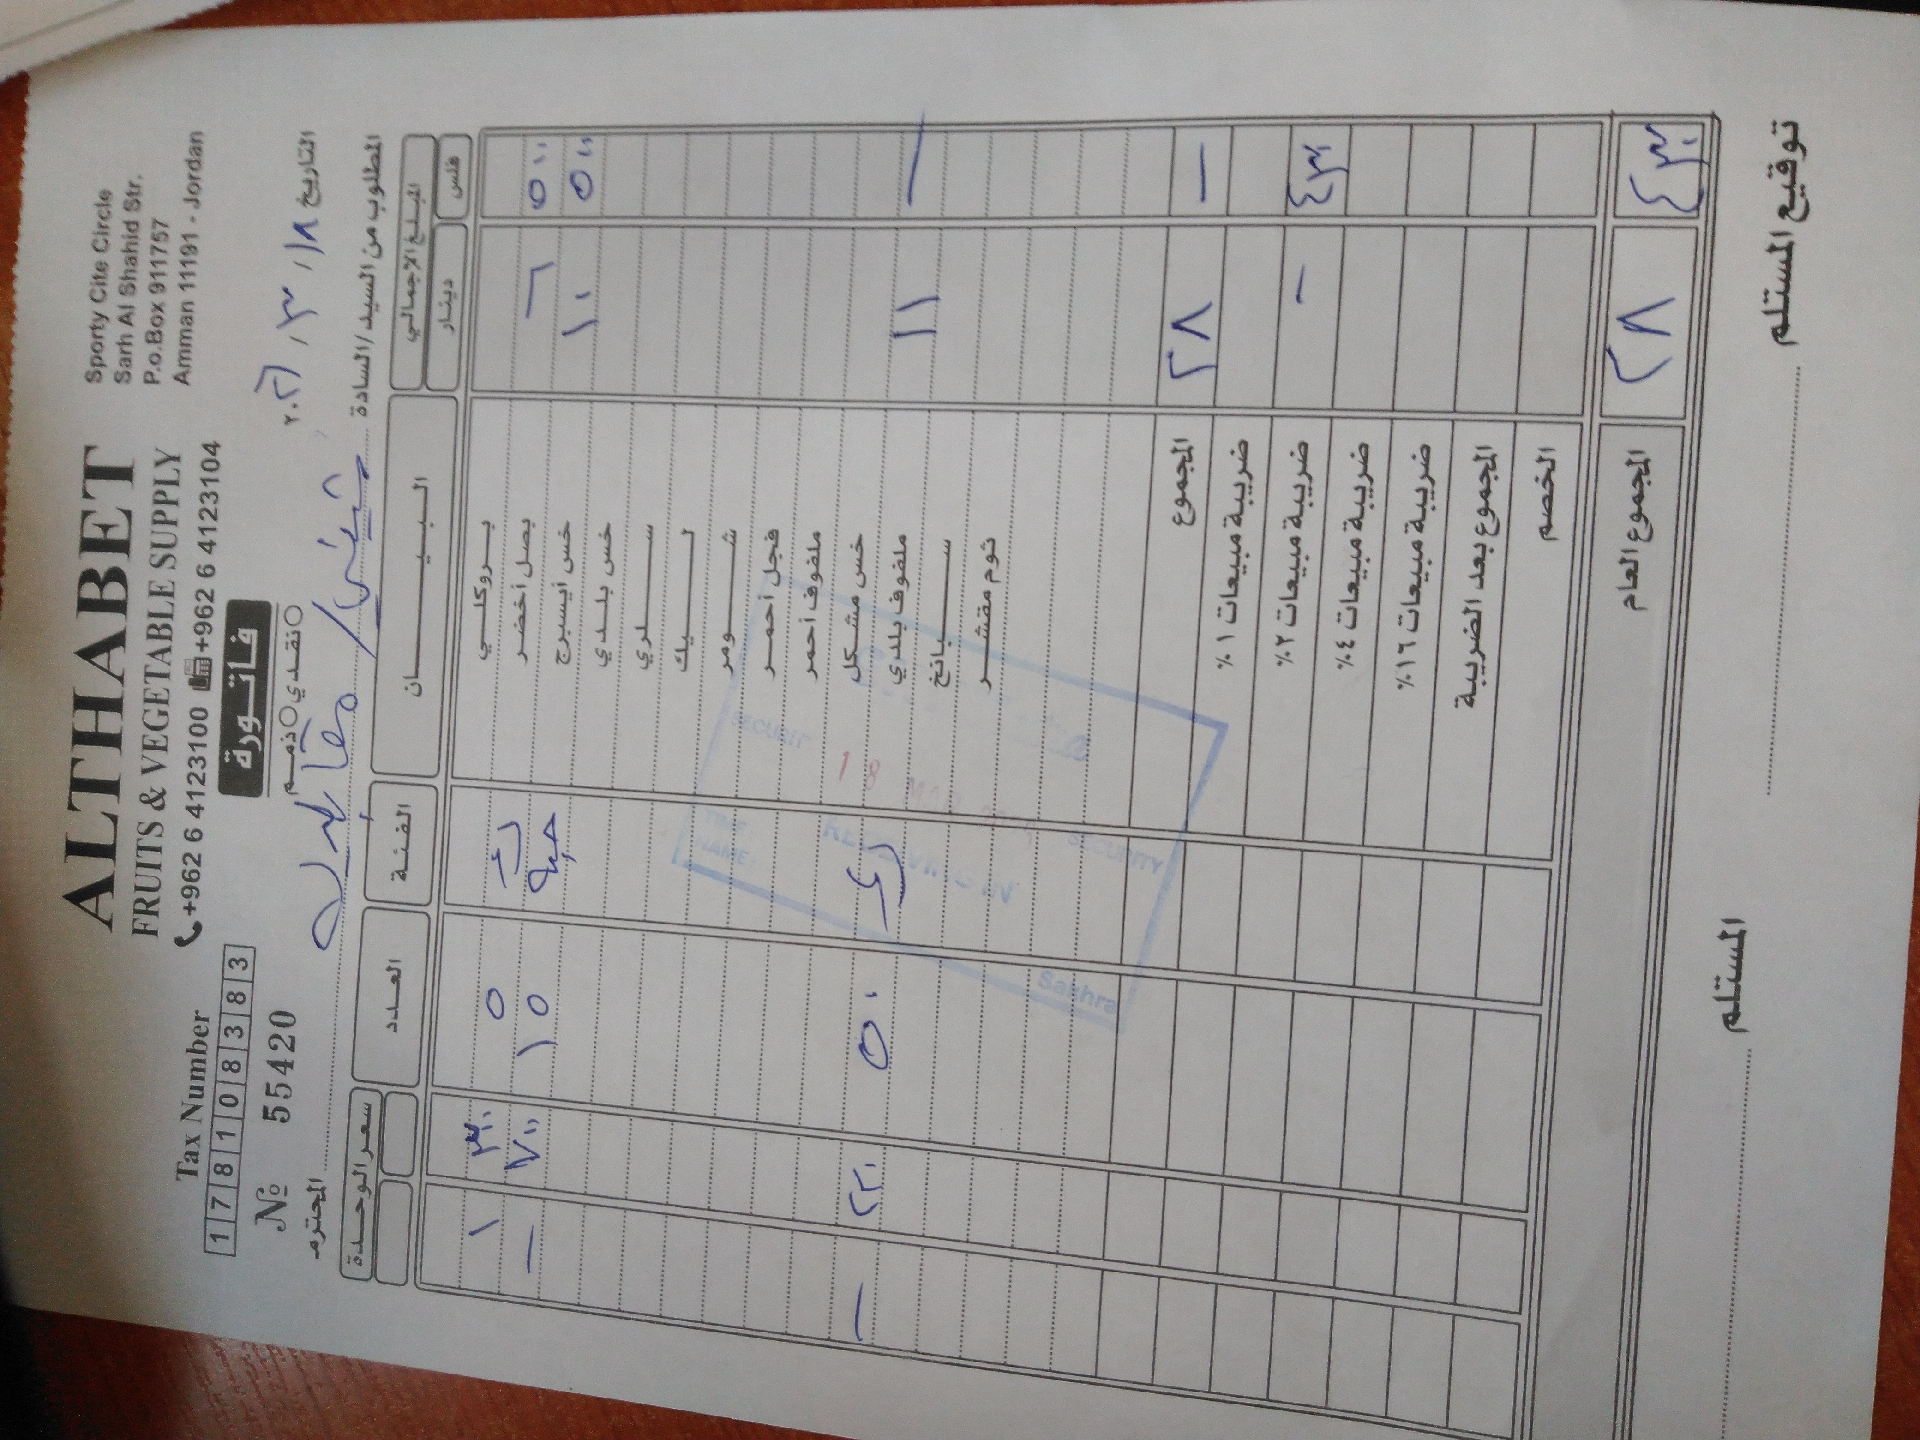 ALTHABET
FRUITS & VEGETABLE SUPPLY
+962 6 4123100 +962 6 4123104
Sporty Cite Circle
Sarh Al Shahid Str.
P.o.Box 911757
Amman 11191 - Jordan
Tax Number
178108383
№ 55420
فاتورة
نقدي ذمم
التاريخ ١٨ / ٣ /
المطلوب من السيد/السادة
المحترم
المبلغ الاجمالي البيــان الفئة العدد سعر الوحدة
فلس دينار
بروكلي
بصل أخضر ٦ ٥٠٠ ٥ ١ ٣٠٠
خس أيسبرج ١٠ ٥٠٠ حبة ١٥ - ٧٠٠
خس بلدي
سلري
ليك
شومر
فجل أحمر
ملفوف أحمر
خس مشكل
ملفوف بلدي ١١ - ٥٠ - ٢٢٠
سبانخ
ثوم مقشر
المجموع ٢٨ -
ضريبة مبيعات ١%
ضريبة مبيعات ٢% - ٤٣٠
ضريبة مبيعات ٤%
ضريبة مبيعات ١٦%
المجموع بعد الضريبة
الخصم
المجموع العام ٢٨ ٤٣٠
SECURITY
18 MAR
RECEIVING IN
TIME
NAME
SECURITY
Sakhra
توقيع المستلم
المستلم